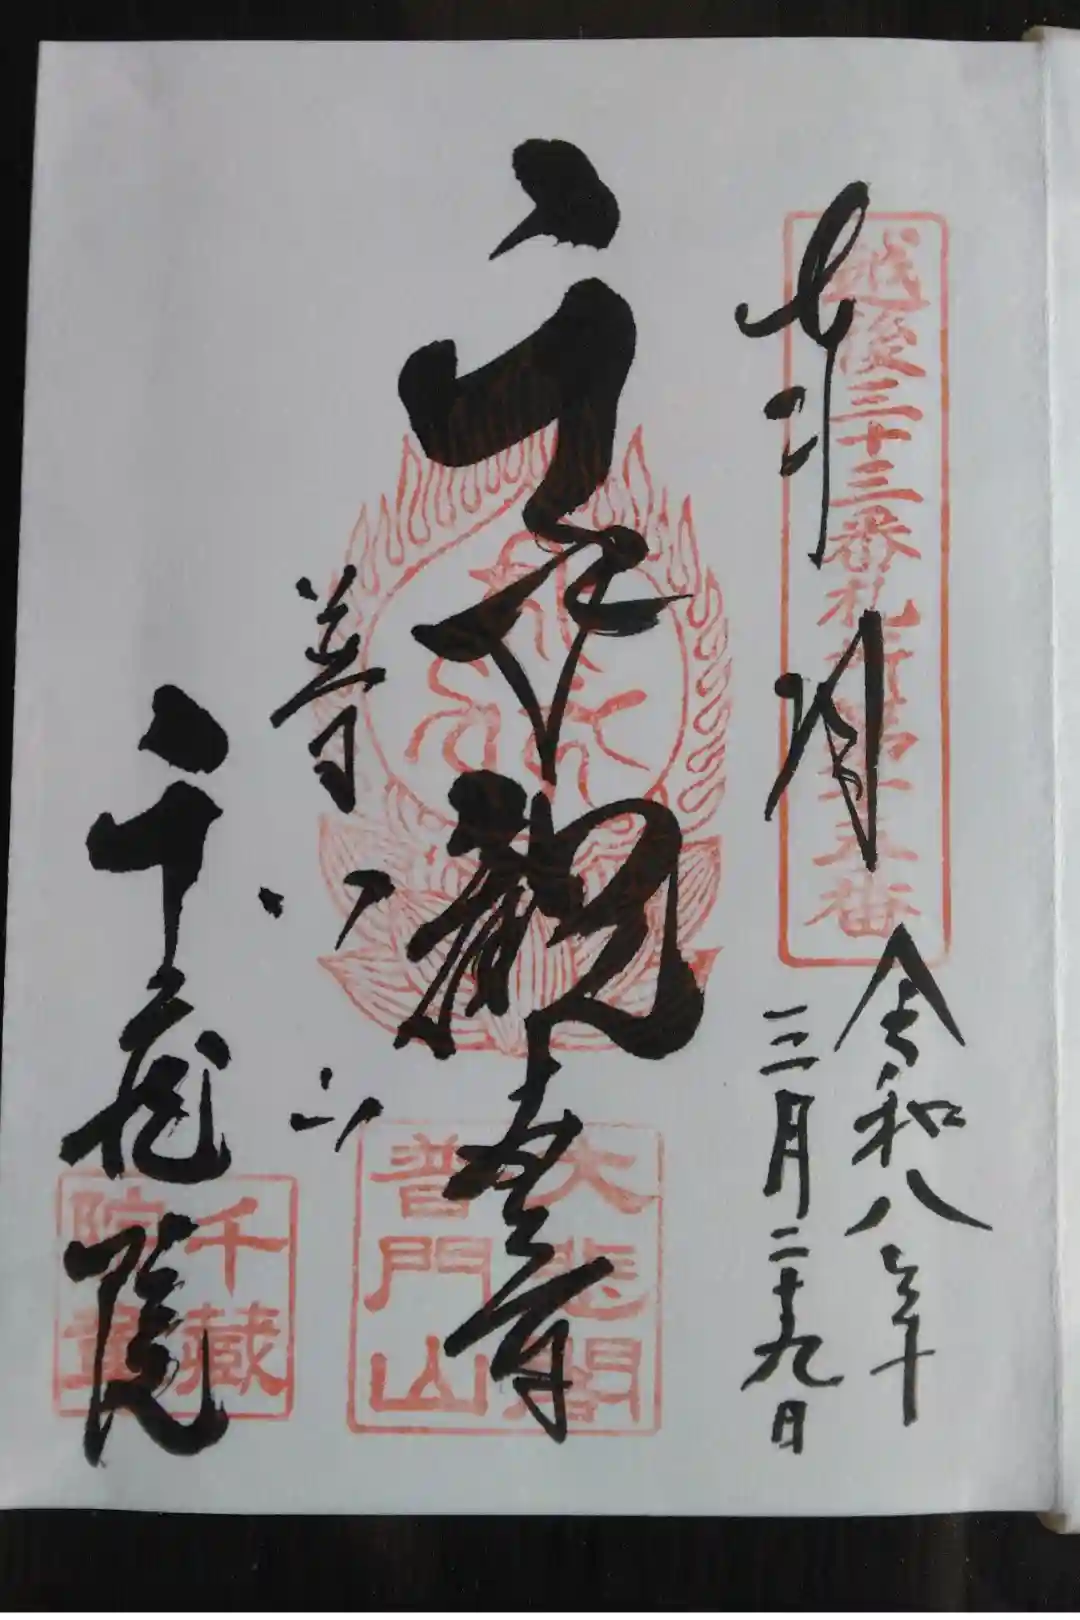 奉拝
越後三十三番札所第十五番
令和八年
三月二十九日
聖観音
大悲閣
普門山
普門山
千蔵院
千蔵
院章